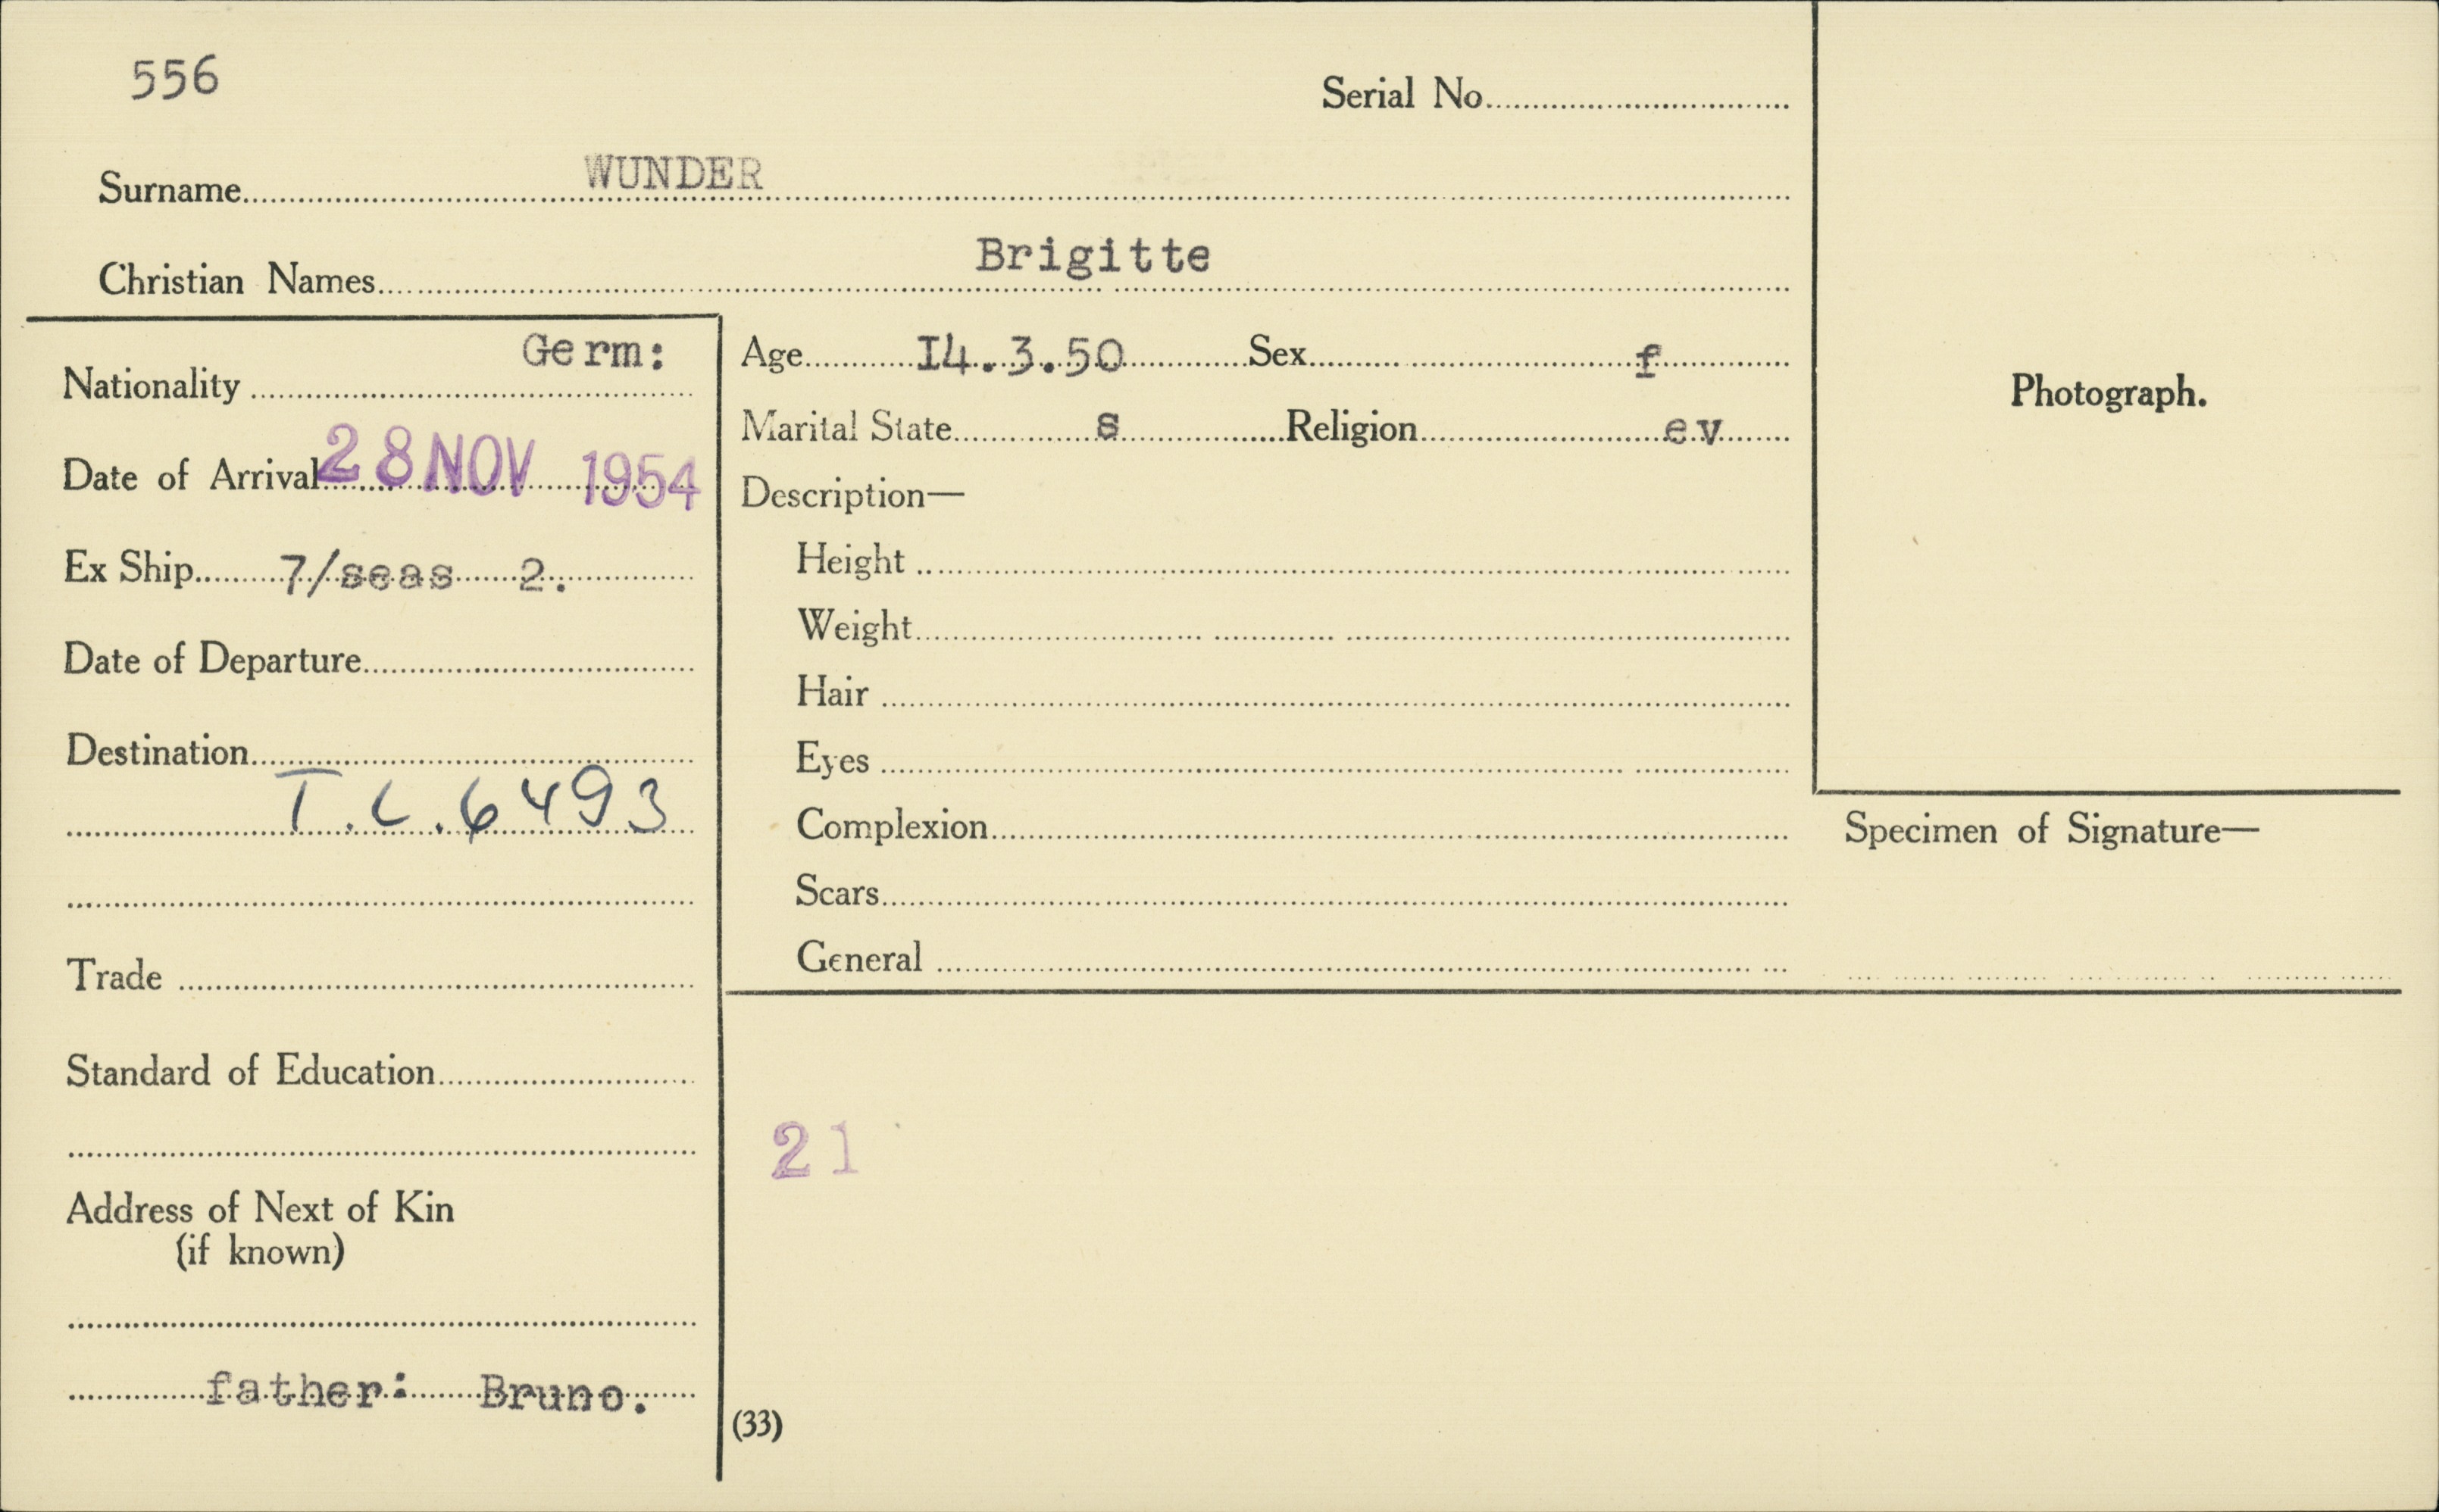 556
Serial No
Surname WUNDER
Christian Names Brigitte
Nationality Germ:
Date of Arrival 28 NOV 1954
Ex Ship 7/seas 2.
Date of Departure
Destination
T.C.6493
Trade
Standard of Education
Address of Next of Kin
(if known)
father: Bruno.
Age I4.3.50 Sex f
Marital State s Religion ev
Description—
Height
Weight
Hair
Eyes
Complexion
Scars
General
21
(33)
Photograph.
Specimen of Signature—